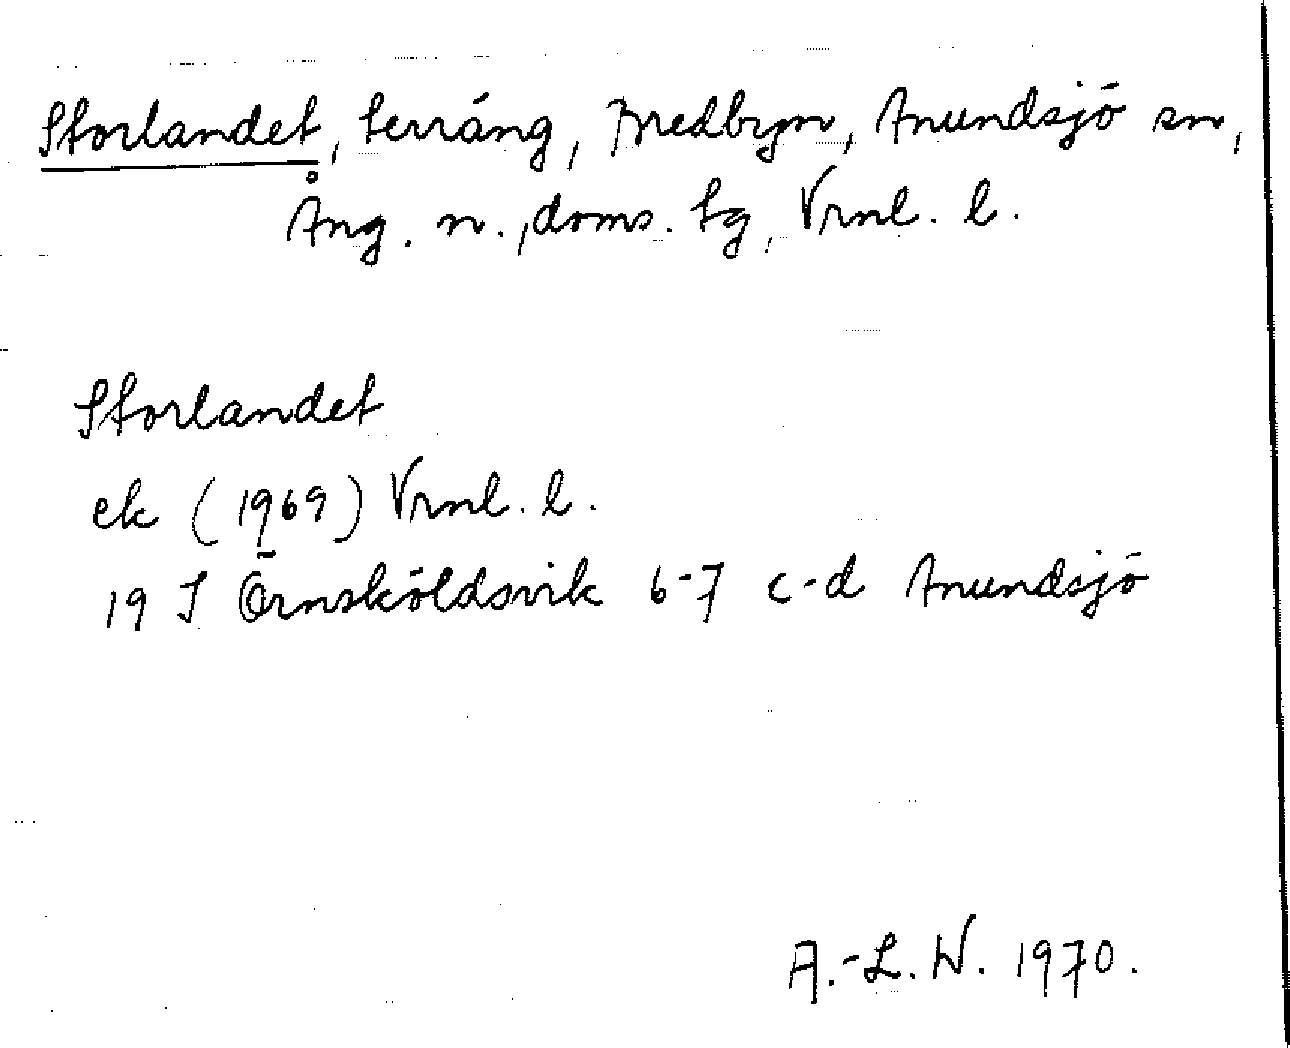 Storlandet, terräng, Bredbyn, Anundsjö sn,
Ång. n., doms. tg, Vrml. l.
Storlandet
ek (1969) Vrml. l.
19 I Örnsköldsvik 6-7 c-d Anundsjö
A.-L. W. 1970.